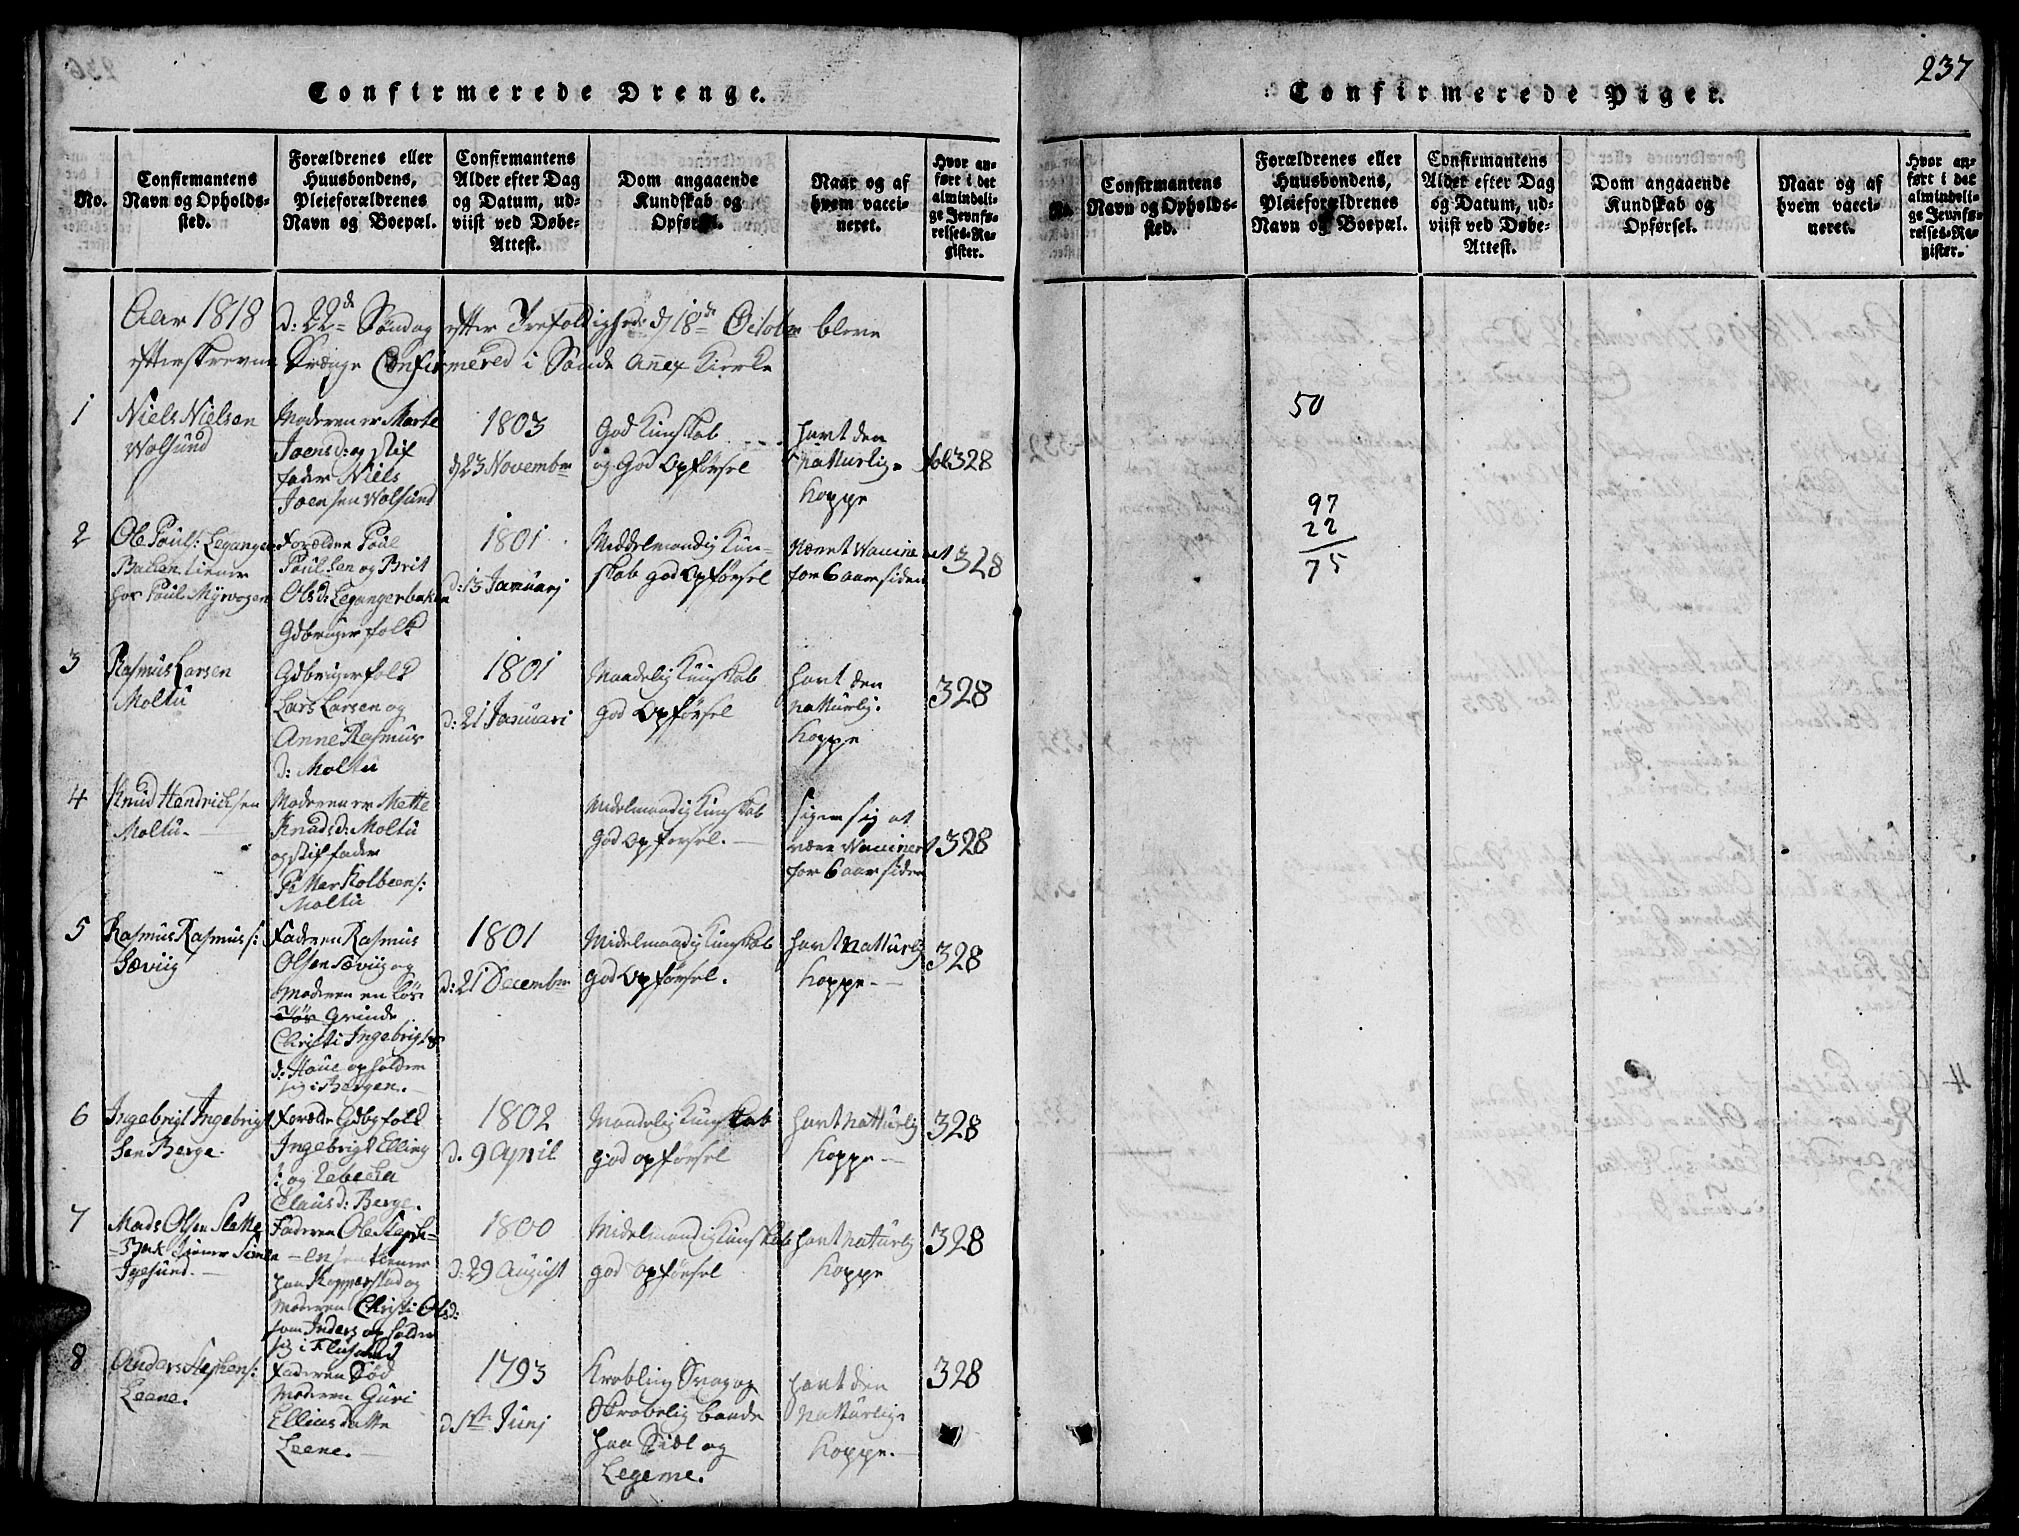 Confirmerede Drenge.
No.
Confirmantens
Navn og Opholds-
sted.
Forældrenes eller
Huusbondens,
Pleieforældrenes
Navn og Boepæl.
Confirmantens
Alder efter Dag
og Datum, ud-
viist ved Døbe-
Attest.
Dom angaaende
Kundskab og
Opførsel.
Naar og af
hvem vacci-
neret.
Hvor an-
ført i det
almindeli-
ge Jevnfø-
relses-Re-
gister.
Aar 1818 d: 22de Søndag efter Trefoldighed d 18de October bleve
efterskrevne Drænge Confirmered i Sande Anex Kirke
1
Niels Nielsen
Volsund
Moderen er Marte
Joensd: og stif
fader Niels
Joensen Volsund
1803
d 23 Novembr
God Kunskab
og God Opførsel
havt den
natturlig-
Koppe
fol 328
2
Ole Pouls: Leganger
Bakken tiener
hos Poul Myrvogen
Forældre Poul
Poulsen og Brit
Olsd: Legangerbaken
Gdbruger folk
1801
d: 13 Januarj
Middelmaadig Kun-
skab god Opførsel
været Vaccineret
for 6 aar siden
328
3
Rasmus Larsen
Moltu
Gdbruger folk
Lars Larsen og
Anne Rasmus
d: Moltu
1801
d: 21 Januari
Maadelig Kunskab
God Opførsel
havt den
natturlig-
Koppe
328
4
Knud Hendrichsen
Moltu.
Moderen er Mette
Knudsd: Moltu
og stif fader
Peter Kolbeens:
Moltu
Midelmaadig Kunskab
God Opførsel.
siger sig at
være Vaccinert
for 6 aar siden
328
5
Rasmus Rasmus s:
Sæviig
Faderen Rasmus
Olsen Sæviig og
Moderen en løs
Qvinde
Christi Ingebrigts
d: Houe opholder
sig i Bergen.
1801
d: 21 Decembr
Midelmaadig Kunskab
god Opførsel.
havt natturlig
Koppe.
328
6
Ingebrigt Ingebrigt
Sen Berge.
Forældre Gdbgfolk
Ingebrigt Elling
s: og Rebecka
Clausd: Berge.
1802
d. 9 April
Maadelig Kunskab
god opførsel
havt natturlig
Koppe
328
7
Mads Olsen Slette
Igesund.
Faderen Ole Steph-
ensen tiener
paa Kopperstad og
Moderen Christi Olsd:
som Inders opholder
sig i Flusund
1800
d: 29 August
Midelmaadig Kunskab
god Opførsel
havt naturlig
Koppe
328
8
Anders Stephens:
Leene.
Faderen Død
Moderen Guri
Ellius datte
Leene.
1793
d 5te Junj
Krøbling Svag og
Skrøbelig baade
paa Siel og
Legeme.
havt den
natturlig-
Koppe.
328
237
Confirmerede Piger.
No.
Confirmantens
Navn og Opholds-
sted.
Forældrenes eller
Huusbondens,
Pleieforældrenes
Navn og Boepæl.
Confirmantens
Alder efter Dag
og Datum, ud-
viist ved Døbe-
Attest.
Dom angaaende
Kundskab og
Opførsel.
Naar og af
hvem vacci-
neret.
Hvor an-
ført i det
almindeli-
ge Jevnfø-
relses-Re-
gister.
50
97
22
75